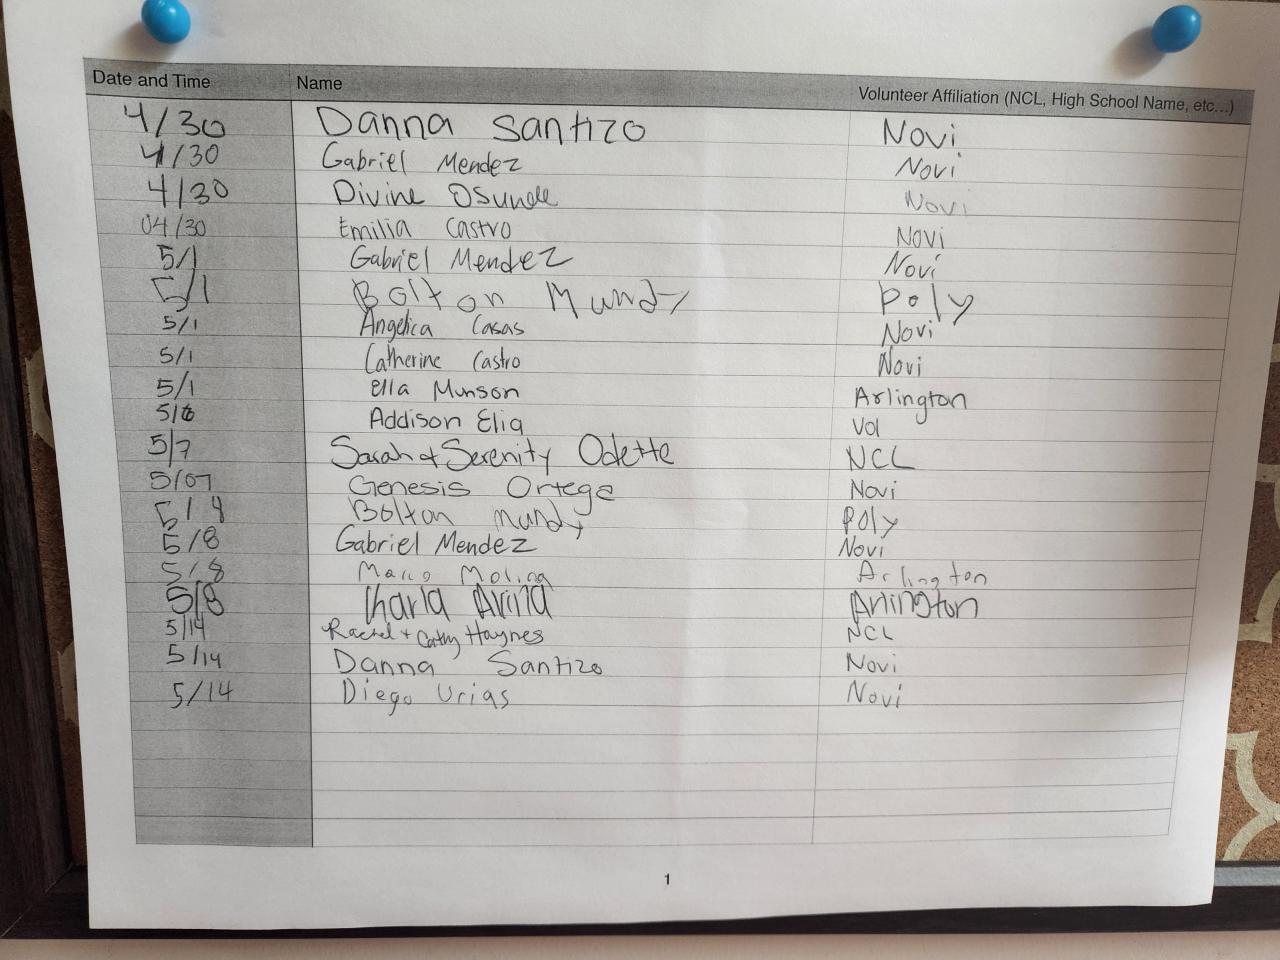 Date and Time Name Volunteer Affiliation (NCL, High School Name, etc...)
4/30 Danna Santizo Novi
4/30 Gabriel Mendez Novi
4/30 Divine Osunde Novi
04/30 Emilia Castro Novi
5/1 Gabriel Mendez Novi
5/1 Bolton Mundy Poly
5/1 Angelica Casas Novi
5/1 Catherine Castro Novi
5/1 Ella Munson Arlington
5/6 Addison Elia Vol
5/7 Sarah + Serenity Odette NCL
5/07 Genesis Ortega Novi
5/8 Bolton Mundy Poly
5/8 Gabriel Mendez Novi
5/8 Marco Molina Arlington
5/8 Arlington
5/14 Rachel + Cathy Haynes NCL
5/14 Danna Santizo Novi
5/14 Diego Urias Novi
1